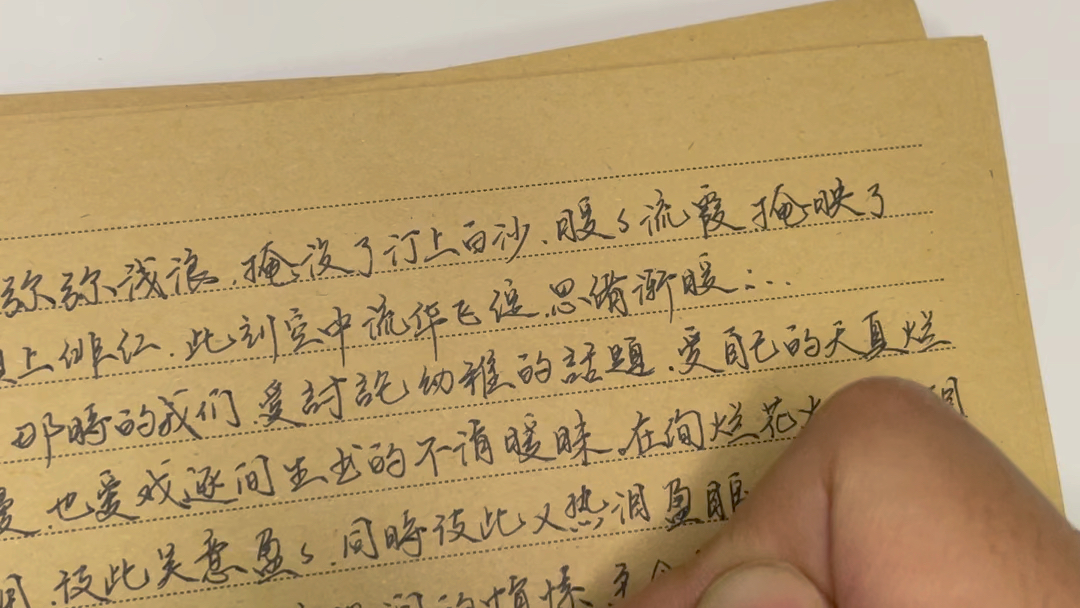 弥弥浅浪,掩没了汀上白沙,暖々流霞掩映了
上绯红,此刻空中流华飞绽,思绪渐暖……
那時的我们,爱討論幼稚的話題,爱自己的天真烂
漫,也爱戏逐间生出的不清暧昧,在绚烂花
彼此笑意盈々,同時彼此又热泪盈眶
的情愫,